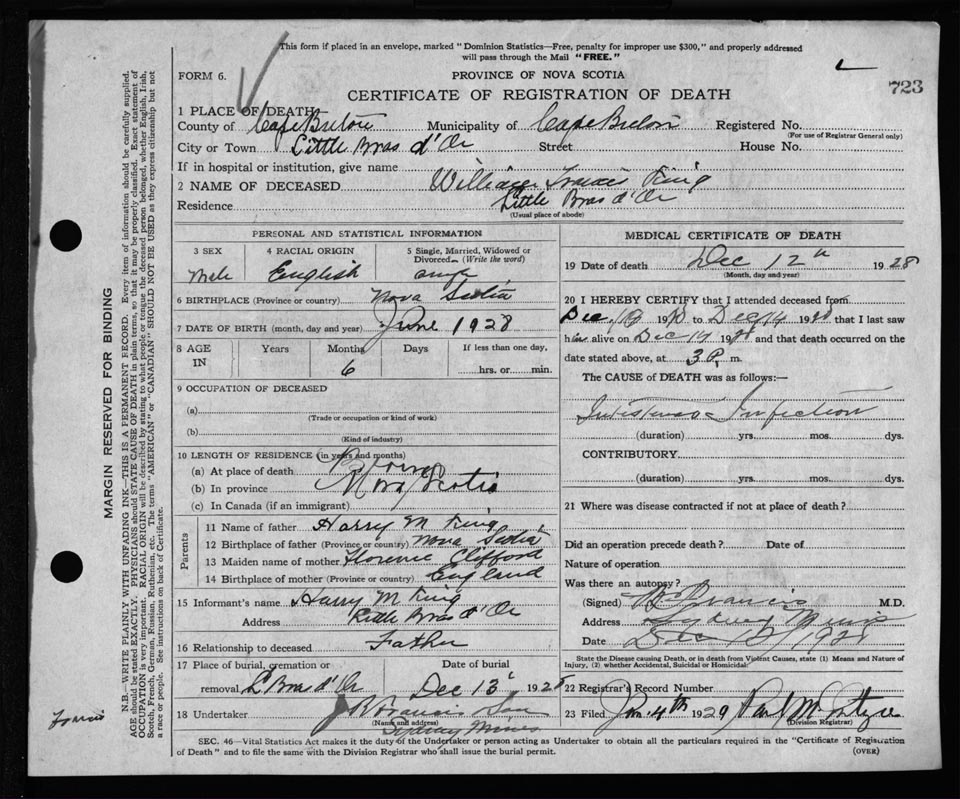 This form if placed in an envelope, marked "Dominion Statistics—Free, penalty for improper use $300," and properly addressed
will pass through the Mail "FREE."
FORM 6.
PROVINCE OF NOVA SCOTIA
723
CERTIFICATE OF REGISTRATION OF DEATH
1 PLACE OF DEATH—
County of Cape Breton Municipality of Cape Breton Registered No.
(For use of Registrar General only)
City or Town Little Bras d'Or Street House No.
If in hospital or institution, give name
2 NAME OF DECEASED William King
Residence Little Bras d'Or
(Usual place of abode)
PERSONAL AND STATISTICAL INFORMATION
3 SEX 4 RACIAL ORIGIN 5 Single, Married, Widowed or
Divorced (Write the word)
Male English
6 BIRTHPLACE (Province or country) Nova Scotia
7 DATE OF BIRTH (month, day and year) June 1928
8 AGE Years Months Days If less than one day,
IN 6 hrs. or min.
9 OCCUPATION OF DECEASED
(a)
(Trade or occupation or kind of work)
(b)
(Kind of industry)
10 LENGTH OF RESIDENCE (in years and months)
(a) At place of death
(b) In province Nova Scotia
(c) In Canada (if an immigrant)
Parents
11 Name of father Harry M King
12 Birthplace of father (Province or country) Nova Scotia
13 Maiden name of mother Florence Clifford
14 Birthplace of mother (Province or country) England
15 Informant's name Harry M King
Address Little Bras d'Or
16 Relationship to deceased Father
17 Place of burial, cremation or Date of burial
removal L Bras d'Or Dec 13 1928
18 Undertaker J R Francis Son
(Name and address)
Sydney Mines
MEDICAL CERTIFICATE OF DEATH
19 Date of death Dec 12 1928
(Month, day and year)
20 I HEREBY CERTIFY that I attended deceased from
Dec. 19 to Dec 14 19 that I last saw
h alive on Dec 19 and that death occurred on the
date stated above, at 3 P. m.
The CAUSE of DEATH was as follows:—
Infection
(duration) yrs. mos. dys.
CONTRIBUTORY
(duration) yrs. mos. dys.
21 Where was disease contracted if not at place of death?
Did an operation precede death? Date of
Nature of operation
Was there an autopsy?
(Signed) Francis M.D.
Address Sydney Mines
Date Dec 1928
State the Disease causing Death, or in death from Violent Causes, state (1) Means and Nature of
Injury, (2) whether Accidental, Suicidal or Homicidal.
22 Registrar's Record Number
23 Filed Jan 4th 1929
(Division Registrar)
SEC. 46—Vital Statistics Act makes it the duty of the Undertaker or person acting as Undertaker to obtain all the particulars required in the "Certificate of Registration
of Death" and to file the same with the Division Registrar who shall issue the burial permit.
(OVER)
MARGIN RESERVED FOR BINDING
N.B.—WRITE PLAINLY WITH UNFADING INK—THIS IS A PERMANENT RECORD. Every item of information should be carefully supplied.
AGE should be stated EXACTLY. PHYSICIANS should STATE CAUSE OF DEATH in plain terms, so that it may be properly classified. Exact statement of
OCCUPATION is very important. RACIAL ORIGIN will be described by stating to what people or tongue the deceased person belonged, whether English, Irish,
Scotch, French, German, Russian, Ruthenian, etc. The terms "AMERICAN" or "CANADIAN" SHOULD NOT BE USED as they express citizenship but not
a race or people. See instructions on back of Certificate.